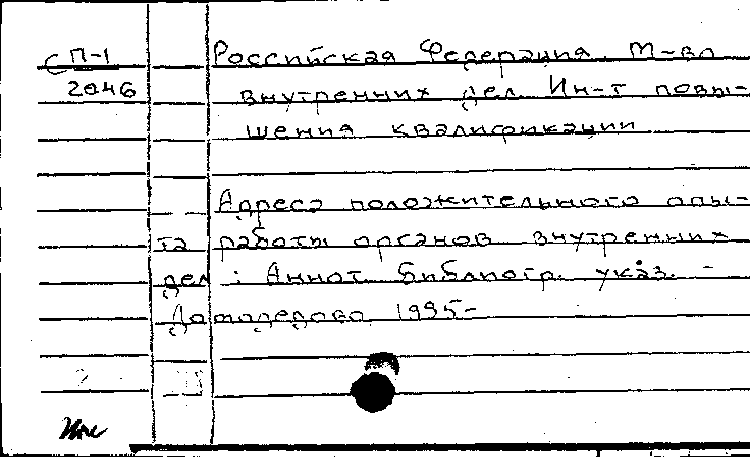 СП-1 Российская Федерация. М-во
2046 внутренних дел. Ин-т повы-
шения квалификации
Адреса положительного опы-
та работы органов внутренних
дел : Аннот. библиогр. указ. -
Домодедово, 1995-